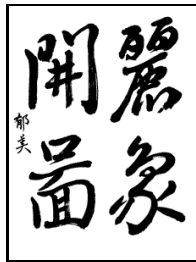 麗象
開圖
郁美